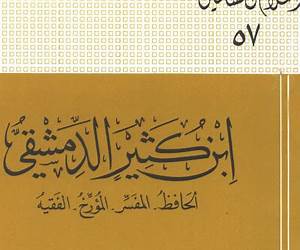 ٥٧
ابْن كَثِيرٍ الدِّمَشْقِيُّ
الحَافِظُ . المُفَسِّرُ . المُؤرِّخُ . الفَقِيهُ